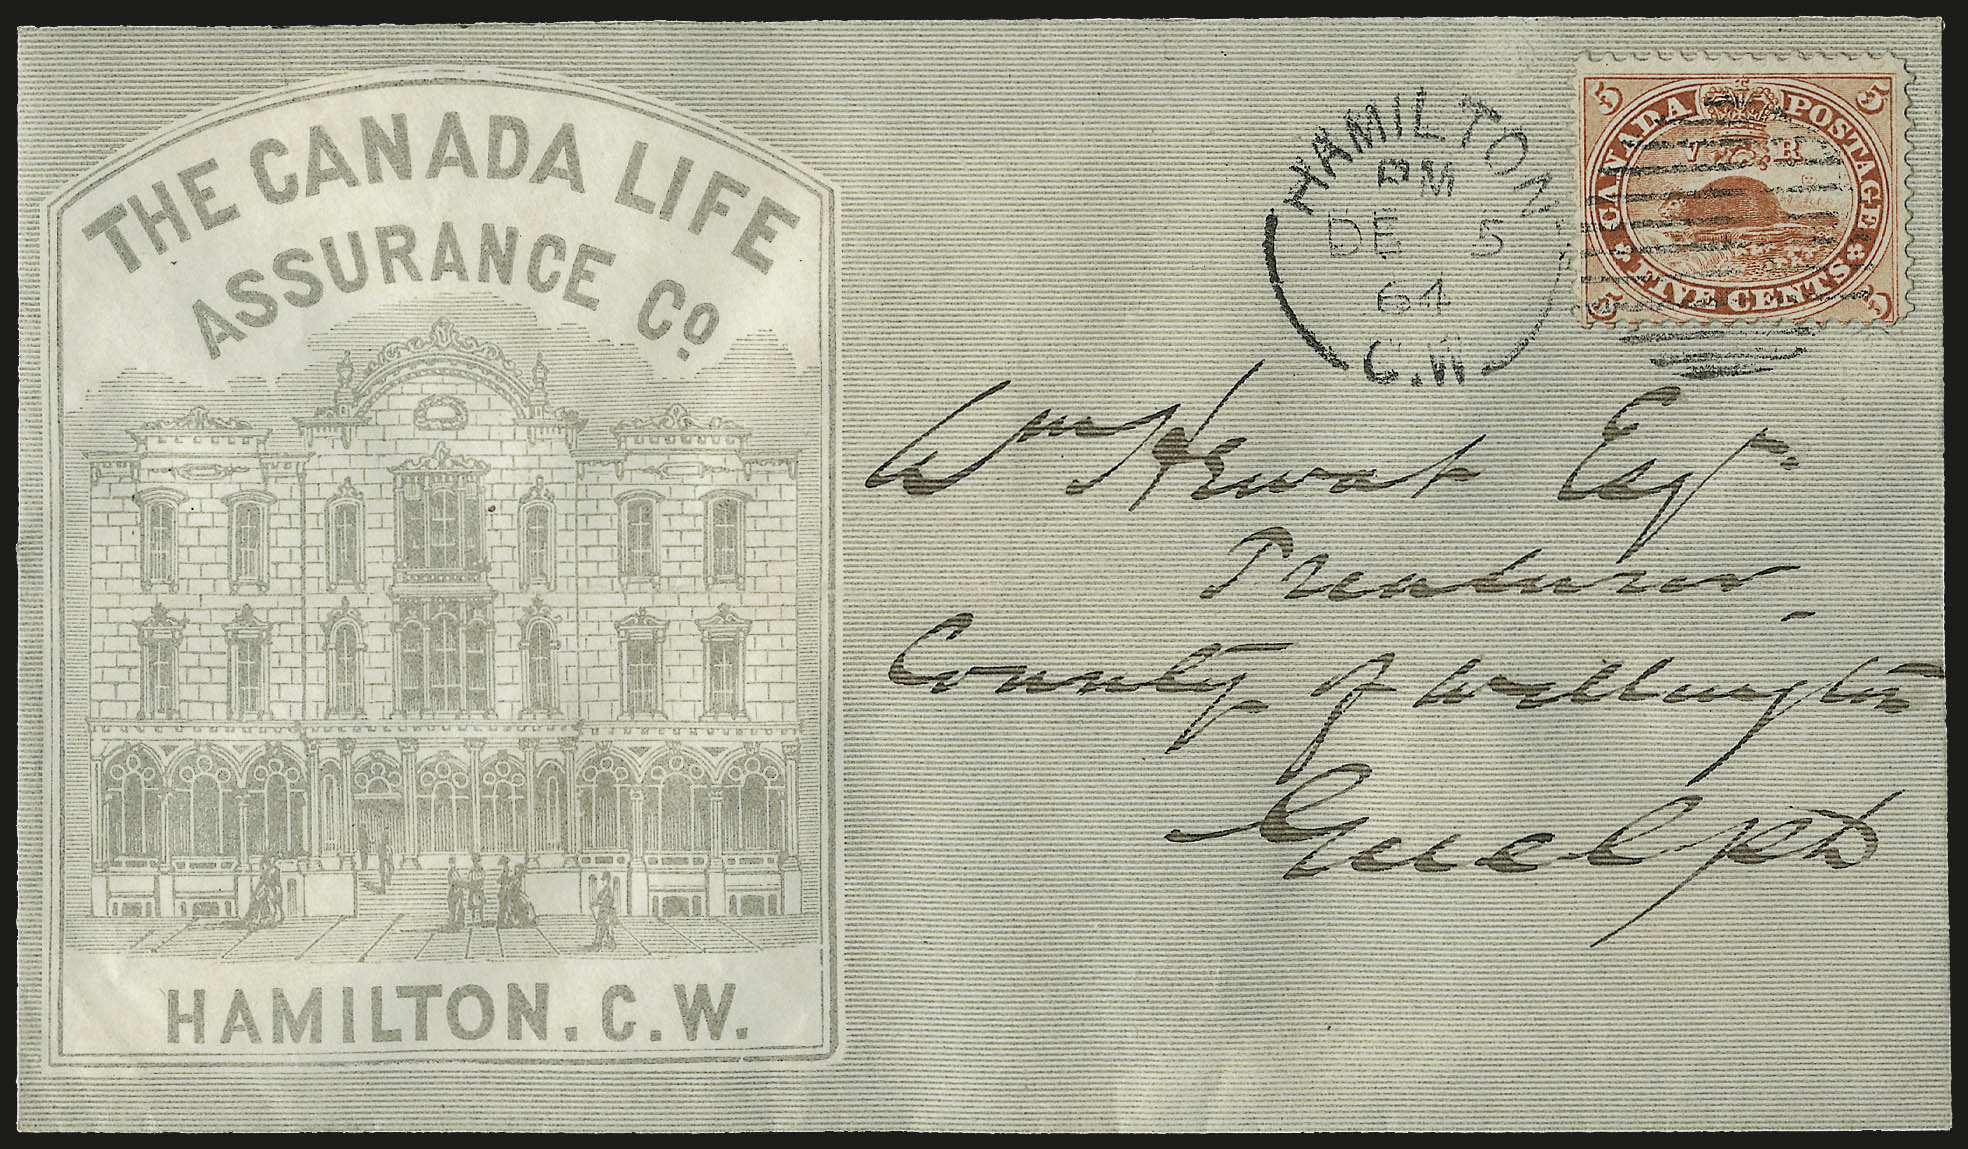 THE CANADA LIFE
ASSURANCE Co
HAMILTON. C. W.
HAMILTON
PM
DE 5
64
C.W
5 5
CANADA POSTAGE
V R
FIVE CENTS
5 5
Wm Hewat Esqr
Treasurer
County of Wellington
Guelph